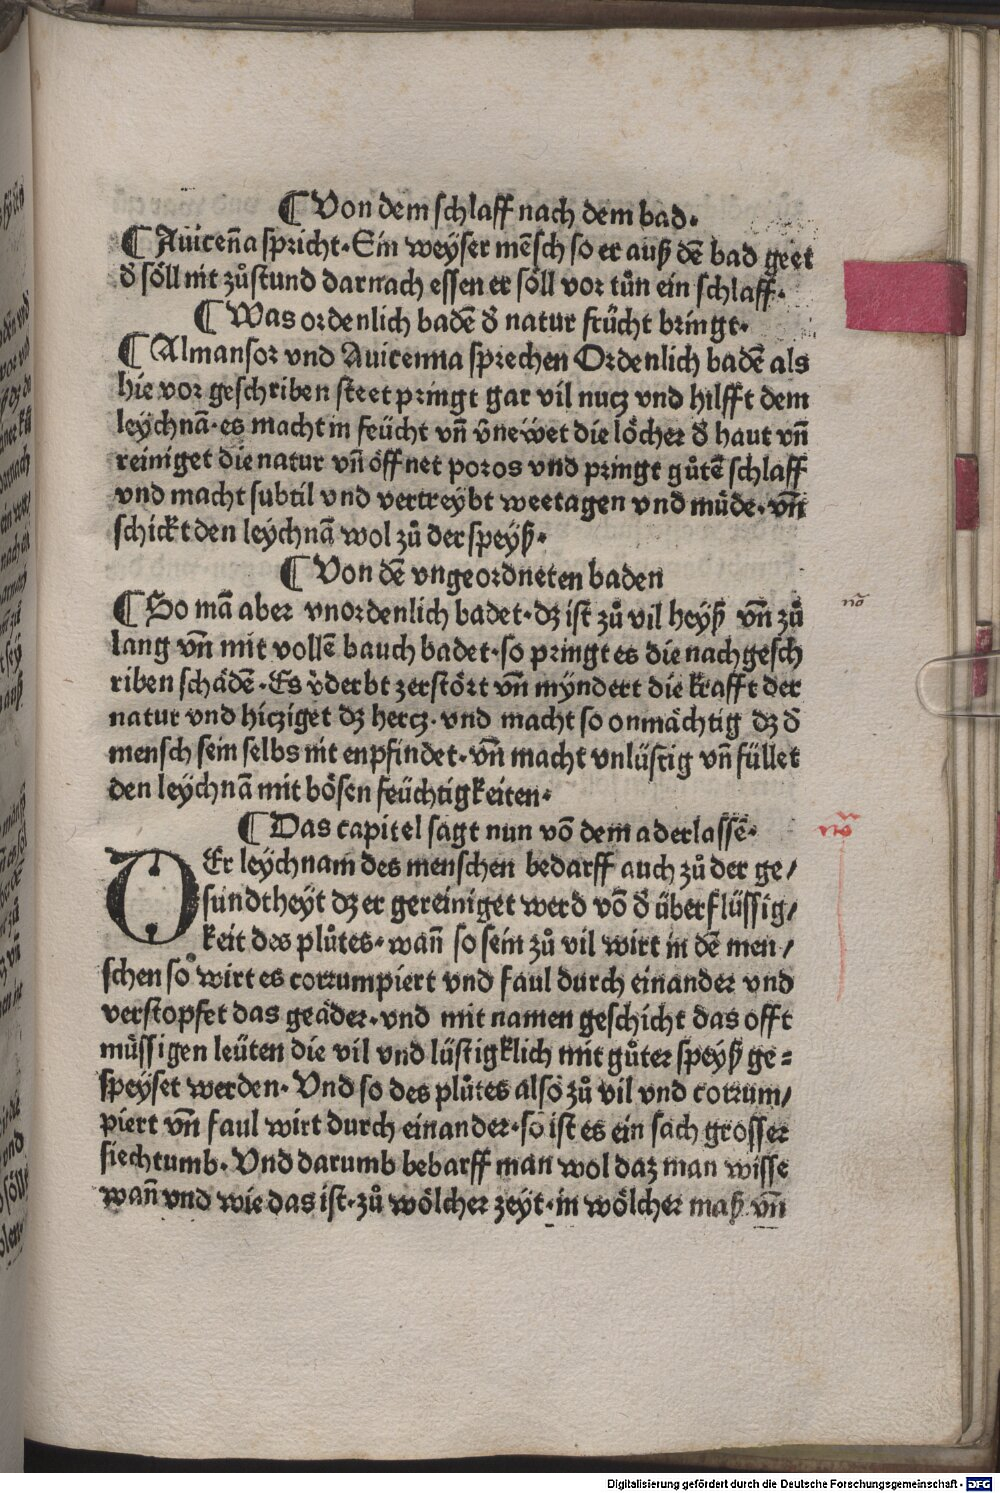 ¶ Von dem schlaff nach dem bad.
¶ Auiceña spricht. Ein weÿser mēsch so er auß dē bad geet
d̕ söll nit zůstund darnach essen er söll vor tůn ein schlaff.
¶ Was ordenlich badē d̕ natur frücht bringt.
¶ Almansor vnd Auicenna sprechen Ordenlich badē als
hie vor geschriben steet pringt gar vil nucz vnd hilfft dem
leÿchnā. es macht in feücht vñ v̕newet die löcher d̕ haut vñ
reiniget die natur vñ öffnet poros vnd pringt gůtē schlaff
vnd macht subtil vnd vertreÿbt weetagen vnd müde. vñ
schickt den leÿchnā wol zů der speÿß.
¶ Von dē vngeordneten baden
¶ So mā aber vnordenlich badet. dz ist zů vil heÿß vñ zů
lang vñ mit vollē bauch badet. so pringt es die nachgesch
riben schädē. Es v̕derbt zerstört vñ mÿndert die krafft der
natur vnd hicziget dz hercz. vnd macht so onmächtig dz d̕
mensch sein selbs nit enpfindet. vñ macht vnlüstig vñ füllet
den leÿchnā mit bösen feüchtigkeiten.
¶ Das capitel sagt nun vō dem aderlassē.
DEr leÿchnam des menschen bedarff auch zů der ge/
sundtheÿt dz er gereiniget werd vō d̕ überflüssig/
keit des plůtes. wañ so sein zů vil wirt in dē men/
schen so wirt es corrumpiert vnd faul durch einander vnd
verstopfet das geäder. vnd mit namen geschicht das offt
müssigen leüten die vil vnd lüstigklich mit gůter speÿß ge=
speÿset werden. Vnd so des plůtes also zů vil vnd corrum/
piert vñ faul wirt durch einander. so ist es ein sach grosser
siechtumb. Vnd darumb bebarff man wol daz man wisse
wañ vnd wie das ist. zů wölcher zeÿt. in wölcher maß vñ
nō
nō
Digitalisierung gefördert durch die Deutsche Forschungsgemeinschaft - DFG